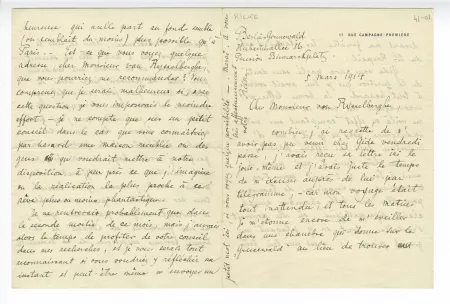 17 RUE CAMPAGNE-PREMIÈRE
Berlin-Grunewald
Hubertusallee 16
Pension Bismarckplatz
5 mars 1914
Cher Monsieur van Rysselberghe,
combien je regrette de n'
avoir pas pu venir chez Gide vendredi
passé, j'avais reçu sa lettre ici le
soir même et j'avais juste le temps
de m'excuser auprès de lui par
télégramme; car mon voyage était
tout inattendu; et tous les matins
je m'étonne encore de m'éveiller
dans une chambre qui donne sur le
Grunewald au lieu de trouver
heureuse qui nulle part au fond semble
(ou semblait du moins) plus possible qu'à
Paris. Est-ce que vous voyez quelque
adresse, cher Monsieur van Rysselberghe,
que vous pourriez me recommander? Vous
comprenez que je serais malheureux si, avec
cette question, je vous imposerais le moindre
effort; je ne compte que sur un petit
conseil dans le cas que vous connaîtriez
par hasard une maison meublée ou des
gens qui voudrait mettre à notre
disposition à peu près ce que j'imagine
en la réalisation la plus proche à ce
rêve plus ou moins phantastique.
Je ne rentrerais probablement que dans
la seconde moitié de ce mois, mais j'aurais
alors le temps de profiter de votre conseil
dans mes recherches; et je vous serais tout
reconnaissant si vous voudriez y réfléchir un
instant et peut être même m'envoyer un
petit mot ici si vous voyez quelque possibilité